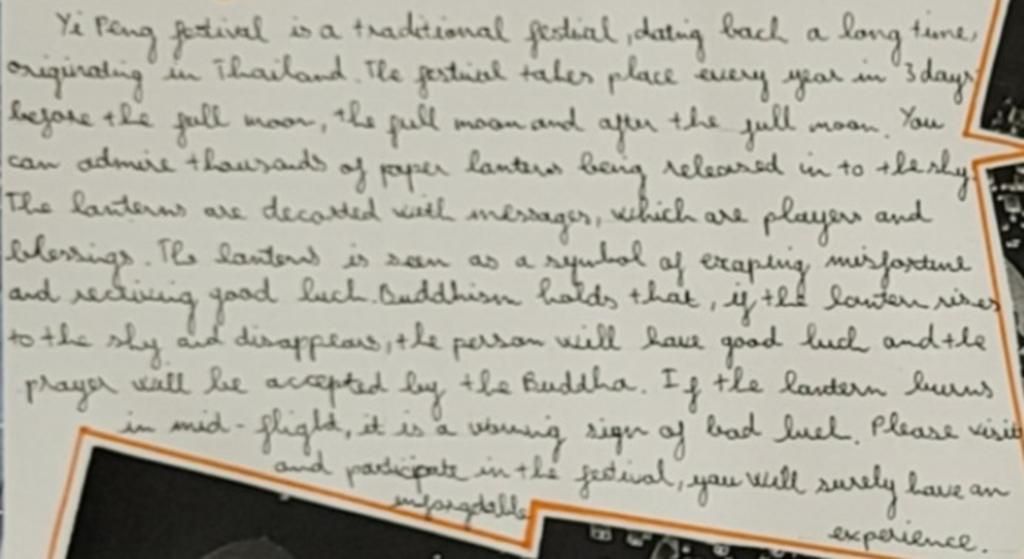 Yi Peng festival is a traditional festial, dating back a long time,
originating in Thailand. The festival takes place every year in 3 days
before the full moon, the full moon and after the full moon. You
can admire thousands of paper lanterns being released in to the sky.
The lanterns are decorted with messages, which are players and
blessings. The lanterns is seen as a symbol of exaping misfortune
and receiving good luck. Buddhism holds that, if the lantern rises
to the sky and disappears, the person will have good luck and the
prayer will be accepted by the Buddha. If the lantern burns
in mid-flight, it is a warning sign of bad luck. Please visit
and participate in the festival, you will surely have an
experience.